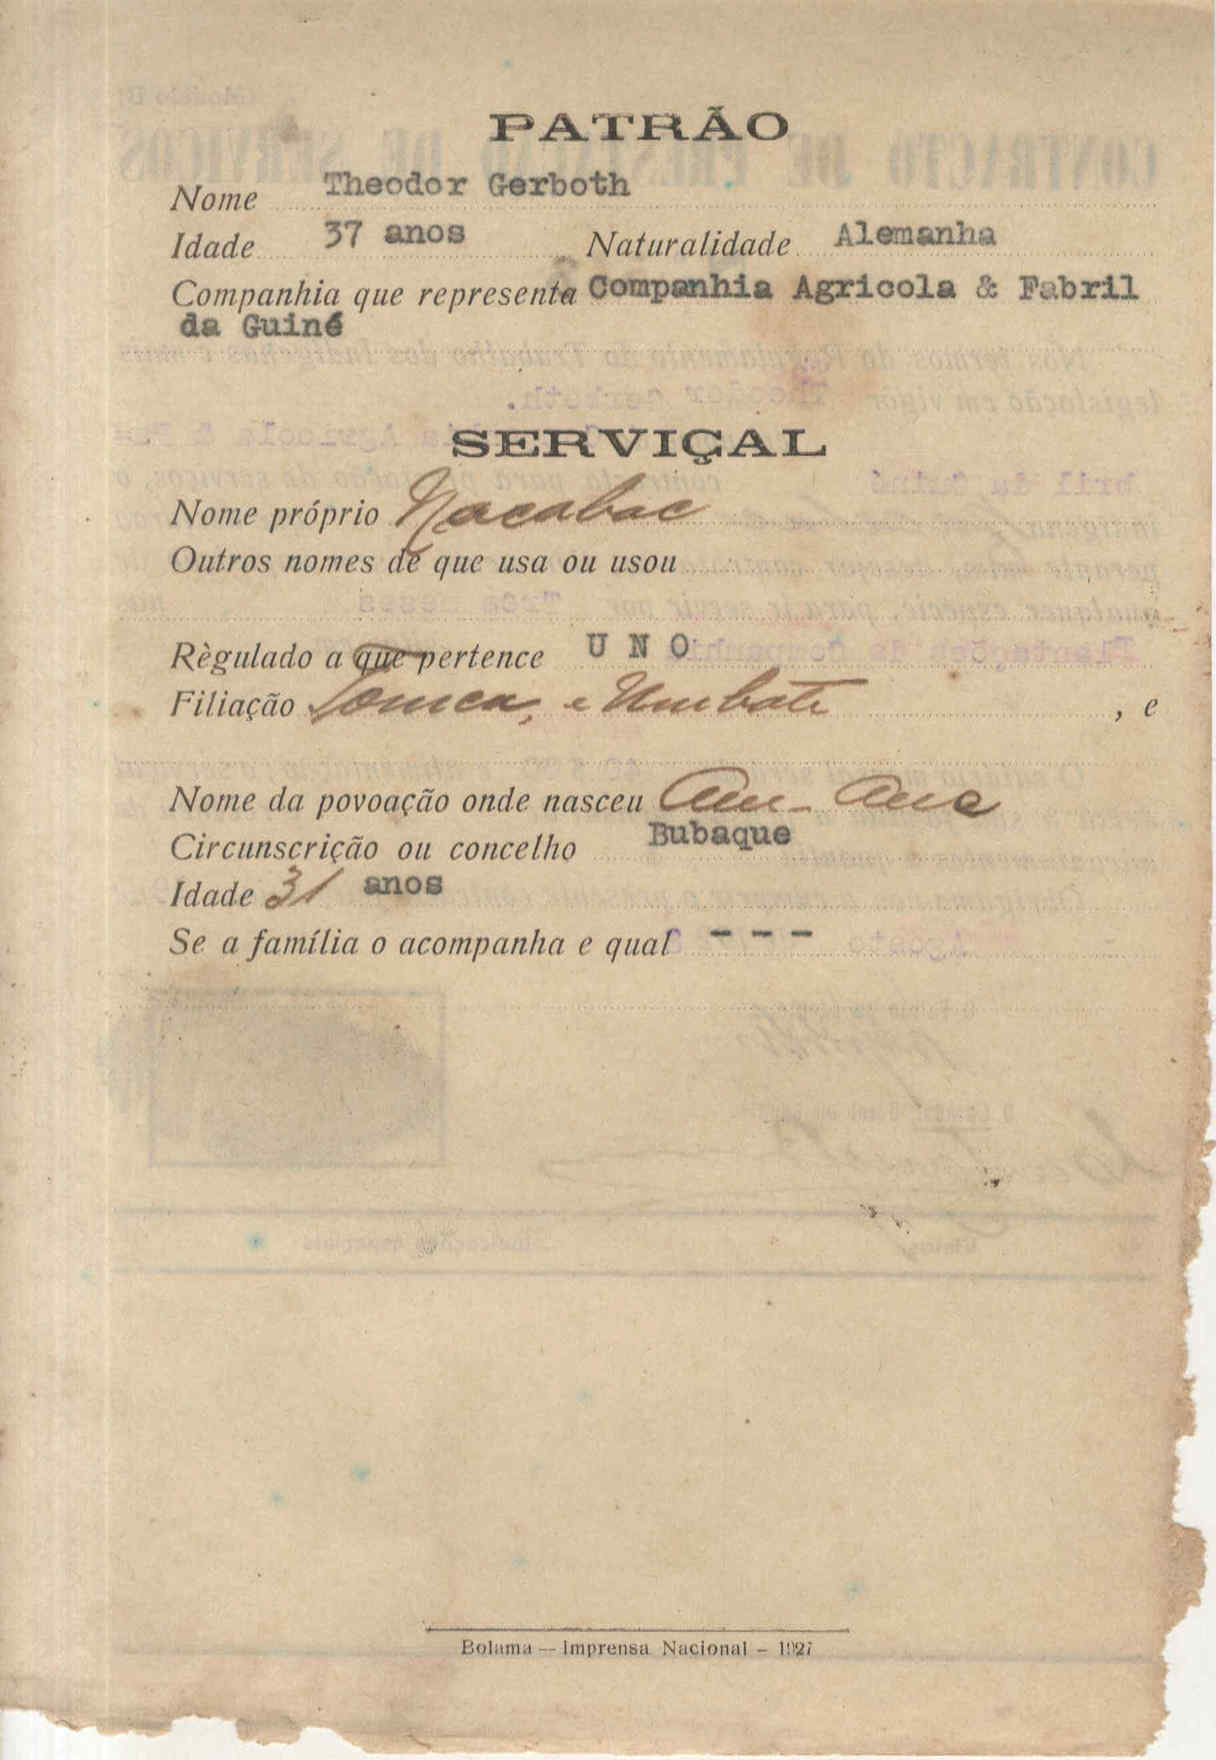 PATRÃO
Nome Theodor Gerboth
Idade 37 anos Naturalidade Alemanha
Companhia que representa Companhia Agricola & Fabril
da Guiné
SERVIÇAL
Nome próprio Nacabac
Outros nomes de que usa ou usou
Règulado a que pertence UNO
Filiação e Umbate , e
Nome da povoação onde nasceu
Circunscrição ou concelho Bubaque
Idade 31 anos
Se a família o acompanha e qual - - -
Bolama — Imprensa Nacional — 1927